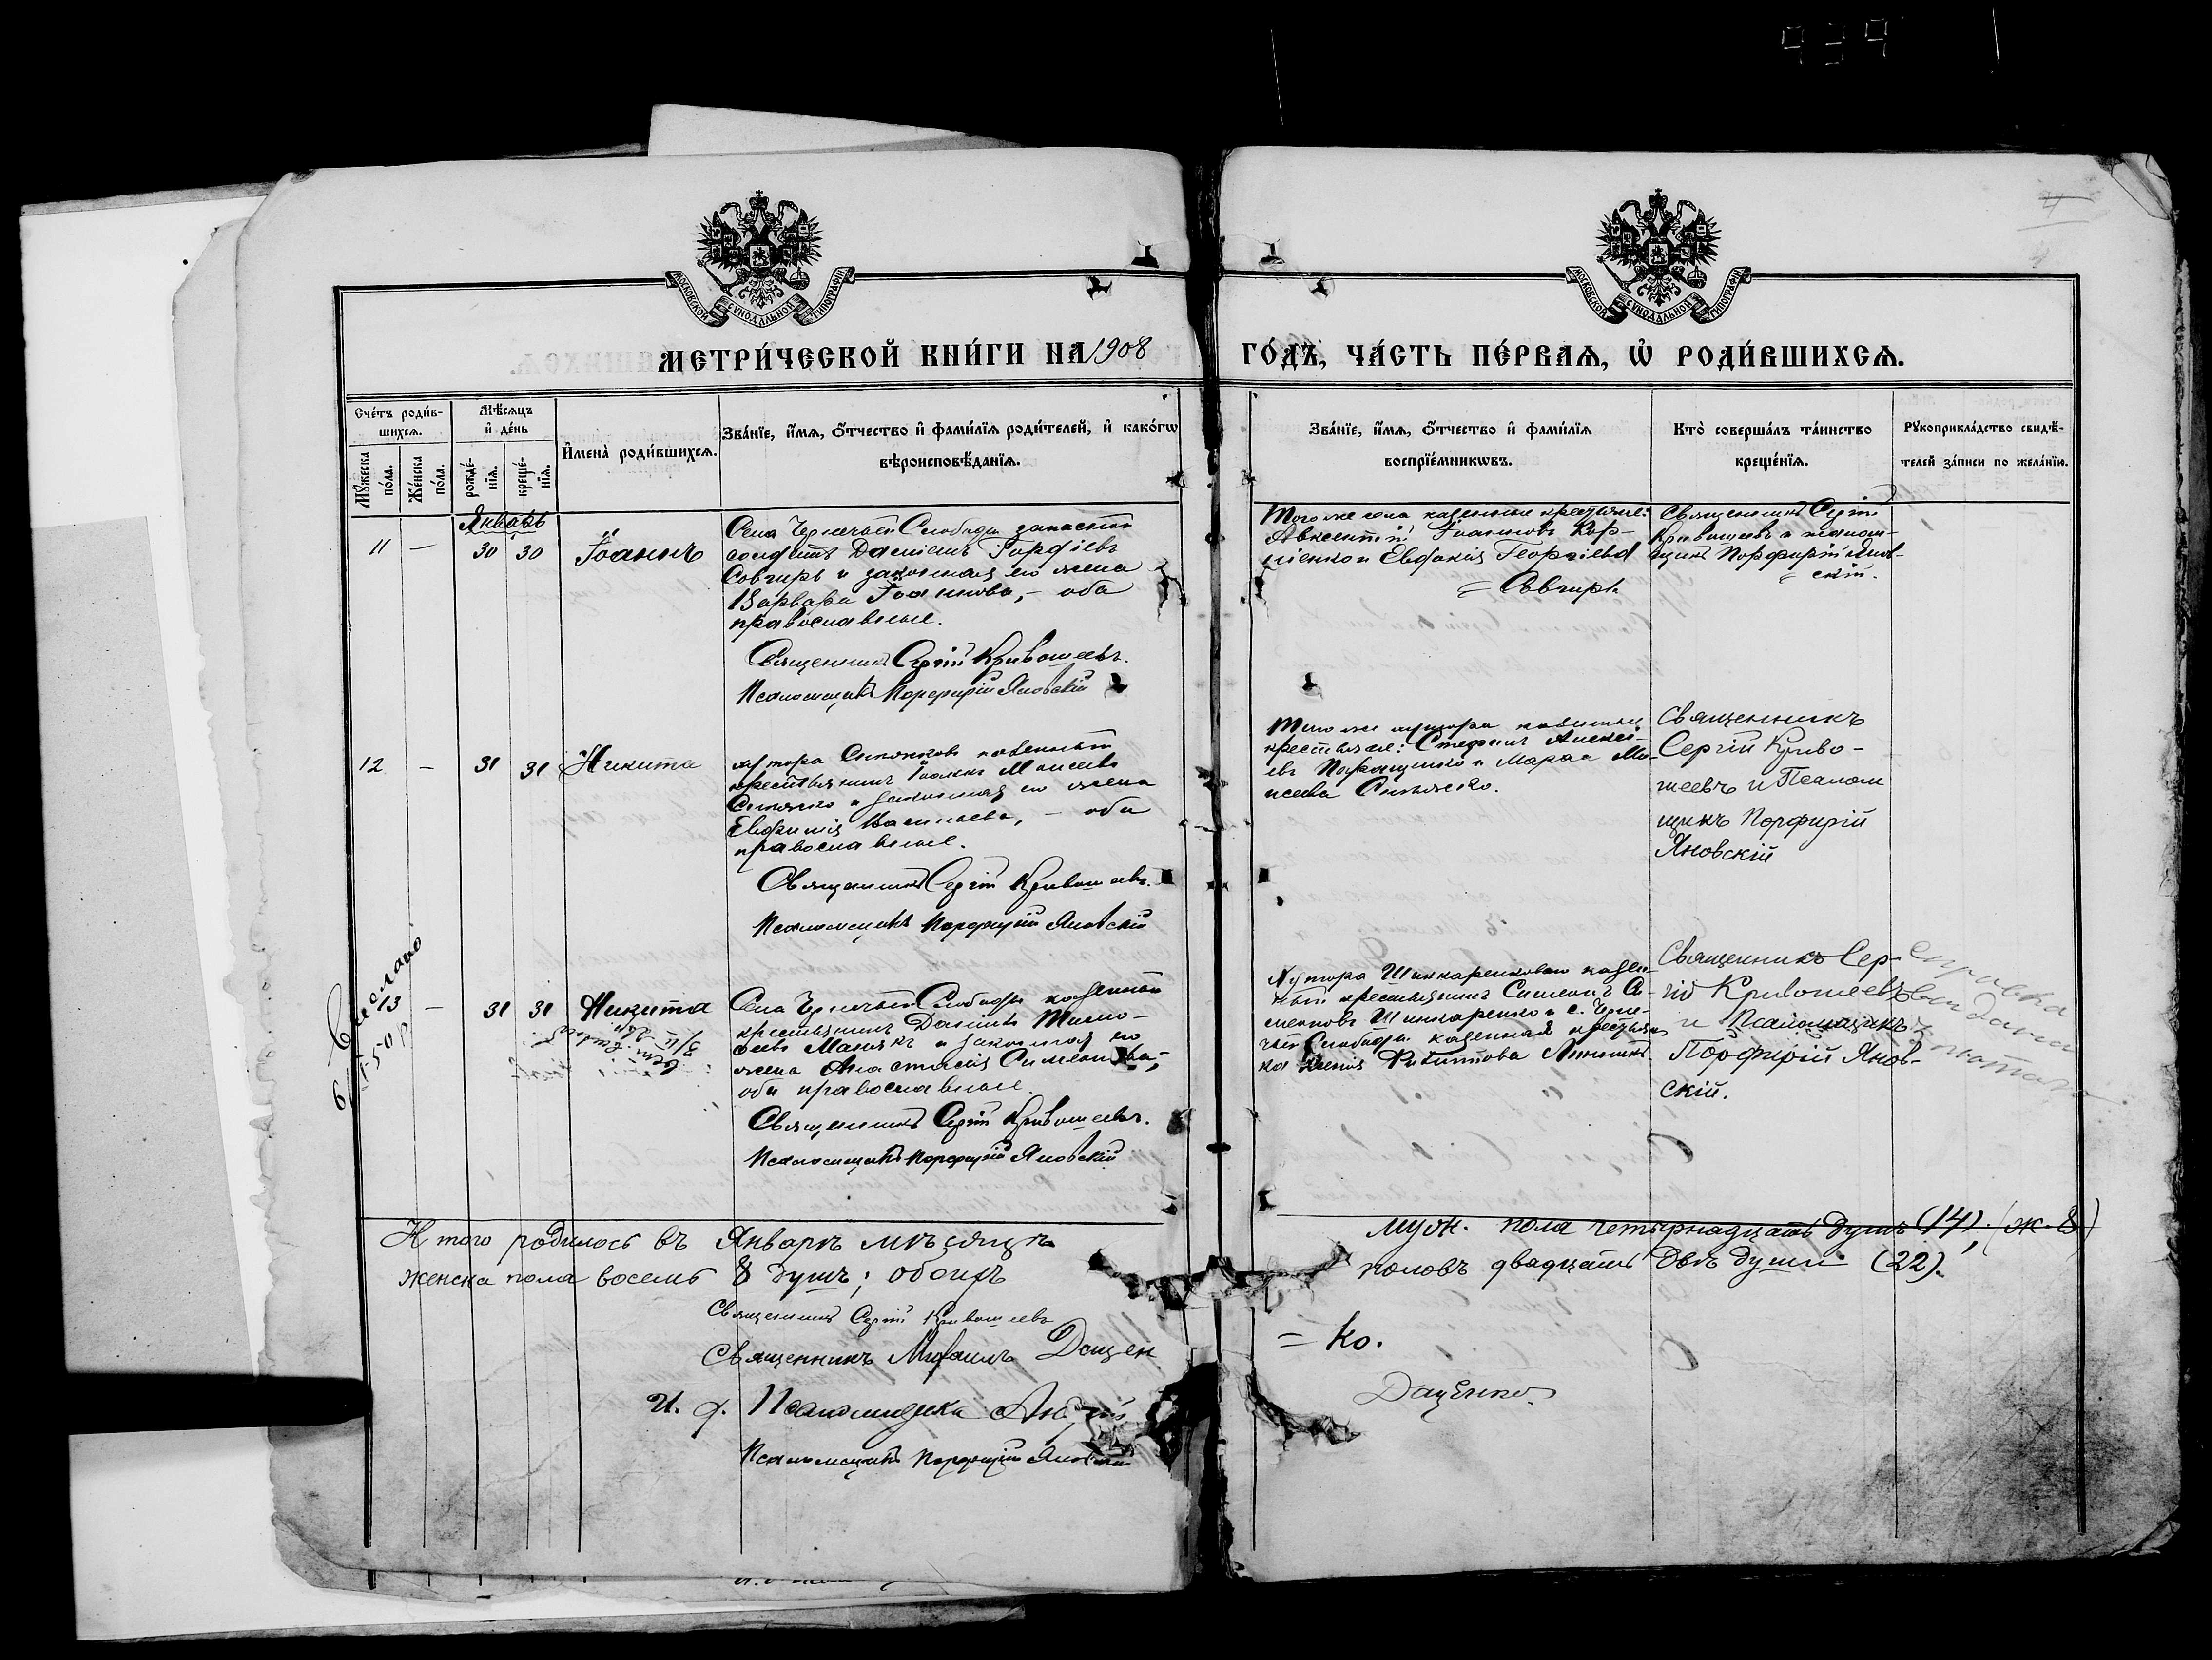 МОСКОВСКОЙ СѴНОДАЛЬНОЙ ТИПОГРАФІИ
МОСКОВСКОЙ СѴНОДАЛЬНОЙ ТИПОГРАФІИ
МЕТРИ́ЧЕСКОЙ КНИ́ГИ НА 1908 ГО́ДЪ, ЧА́СТЬ ПЕ́РВАѦ, Ѡ҆ РОДИ́ВШИХСѦ.
Сче́тъ роди́в-
шихсѧ.
Мꙋ́жеска по́ла.
Же́нска по́ла.
Мѣ́сѧцъ
и҆ де́нь
рожде́-
нїѧ.
креще́-
нїѧ.
И҆мена̀ роди́вшихсѧ.
Зва́нїе, и҆́мѧ, ѻ҆́тчество и҆ фами́лїѧ роди́телей, и҆ како́гѡ
вѣроисповѣ́данїѧ.
Зва́нїе, и҆́мѧ, ѻ҆́тчество и҆ фами́лїѧ
воспрїе́мникѡвъ.
Кто̀ соверша́лъ та́инство
креще́нїѧ.
Рꙋкоприкла́дство свидѣ́-
телей за́писи по жела́нїю.
Январь
11 — 30 30 Іоаннъ
Села Чернечьей Слободы запасный
солдатъ Даніилъ Гордіевъ
Совгирь и законная его жена
Варвара Іоаннова, – оба
православные.
Священникъ Сергій Кривошеевъ.
Псаломщикъ Порфирій Яновскій
Того же села казенные крестьяне:
Авксентій Іоанновъ Кор-
ніенко и Евдокія Георгіева
= Совгирь
Священникъ Сергій
Кривошеевъ и псалом-
щикъ Порфирій Янов-
= скій.
12 — 31 31 Никита
хутора казенный
крестьянинъ Іоаннъ Моисеевъ
и законная его жена
Евфимія Васильева, – оба
православные.
Священникъ Сергій Кривошеевъ.
Псаломщикъ Порфирій Яновскій
Того же хутора казенные
крестьяне: Стефанъ Алексі-
евъ и Марѳа Мо-
исеева
Священникъ
Сергій Криво-
шеевъ и Псалом
щикъ Порфирій
Яновскій
13 — 31 31 Никита
Села Чернечьей Слободы казенный
крестьянинъ Даніилъ Тимо-
ѳеевъ и законная его
жена Анастасія Симеонова,–
оба православные.
Священникъ Сергій Кривошеевъ.
Псаломщикъ Порфирій Яновскій
Хутора Шинкаренкова казен-
ный крестьянинъ Симеонъ Си-
меоновъ Шинкаренко и с. Черне-
чьей Слободы казенная крестьян
ка Ксенія
Священникъ Сер-
гій Кривошеевъ
и Псаломщикъ
Порфирій Янов-
скій.
Справка
выдана
Итого родилось въ Январѣ мѣсяцѣ муж. пола четырнадцать душъ (14); (ж. 8)
женска пола восемь 8 душъ; обоихъ половъ двадцать двѣ души (22).
Священникъ Сергій Кривошеевъ
Священникъ Михаилъ Дацен
= ко.
И. д. Псаломщика Андрей
Даценко
Псаломщикъ Порфирій Яновскій